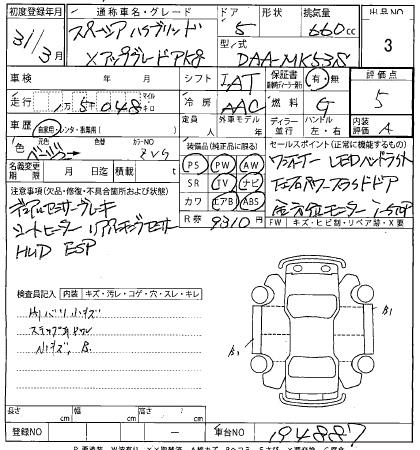 初度登録年月 通称車名・グレード ドア 形状 排気量 出品NO
31/3月 スペーシアハイブリッド 5 660cc 3
XアップグレードアP&S 型式 DAA-MK53S
車検 年 月 シフト IAT 保証書 有・無 評価点
走行 1万5千048 マイル キロ 冷房 AAC 燃料 G 5
車歴 自家用・レンタ・事業用( ) 定員 人 外車モデル 年 ディーラー 並行 ハンドル 左・右 内装評価 A
色 元色 ベージュ 色替 カラーNO ZVG 装備品(純正品に限る) セールスポイント(正常に機能するもの)
名義変更期限 月 日 積載 t PS PW AW ワンオーナー LEDヘッドライト
注意事項(欠品・修復・不具合箇所および状態) SR TV ナビ 両パワースライドドア
デュアルセンサーブレーキ カワ エアB ABS 全方位モニター i-STOP
シートヒーター リアセンサー R券 9310円 FW キズ・ヒビ割・リペア跡・X要
HUD ESP
検査員記入 内装 キズ・汚レ・コゲ・穴・スレ・キレ
小キズ
小キズ、B.
B1 B1
長さ cm 幅 cm 高さ cm
登録NO 車台NO 194887